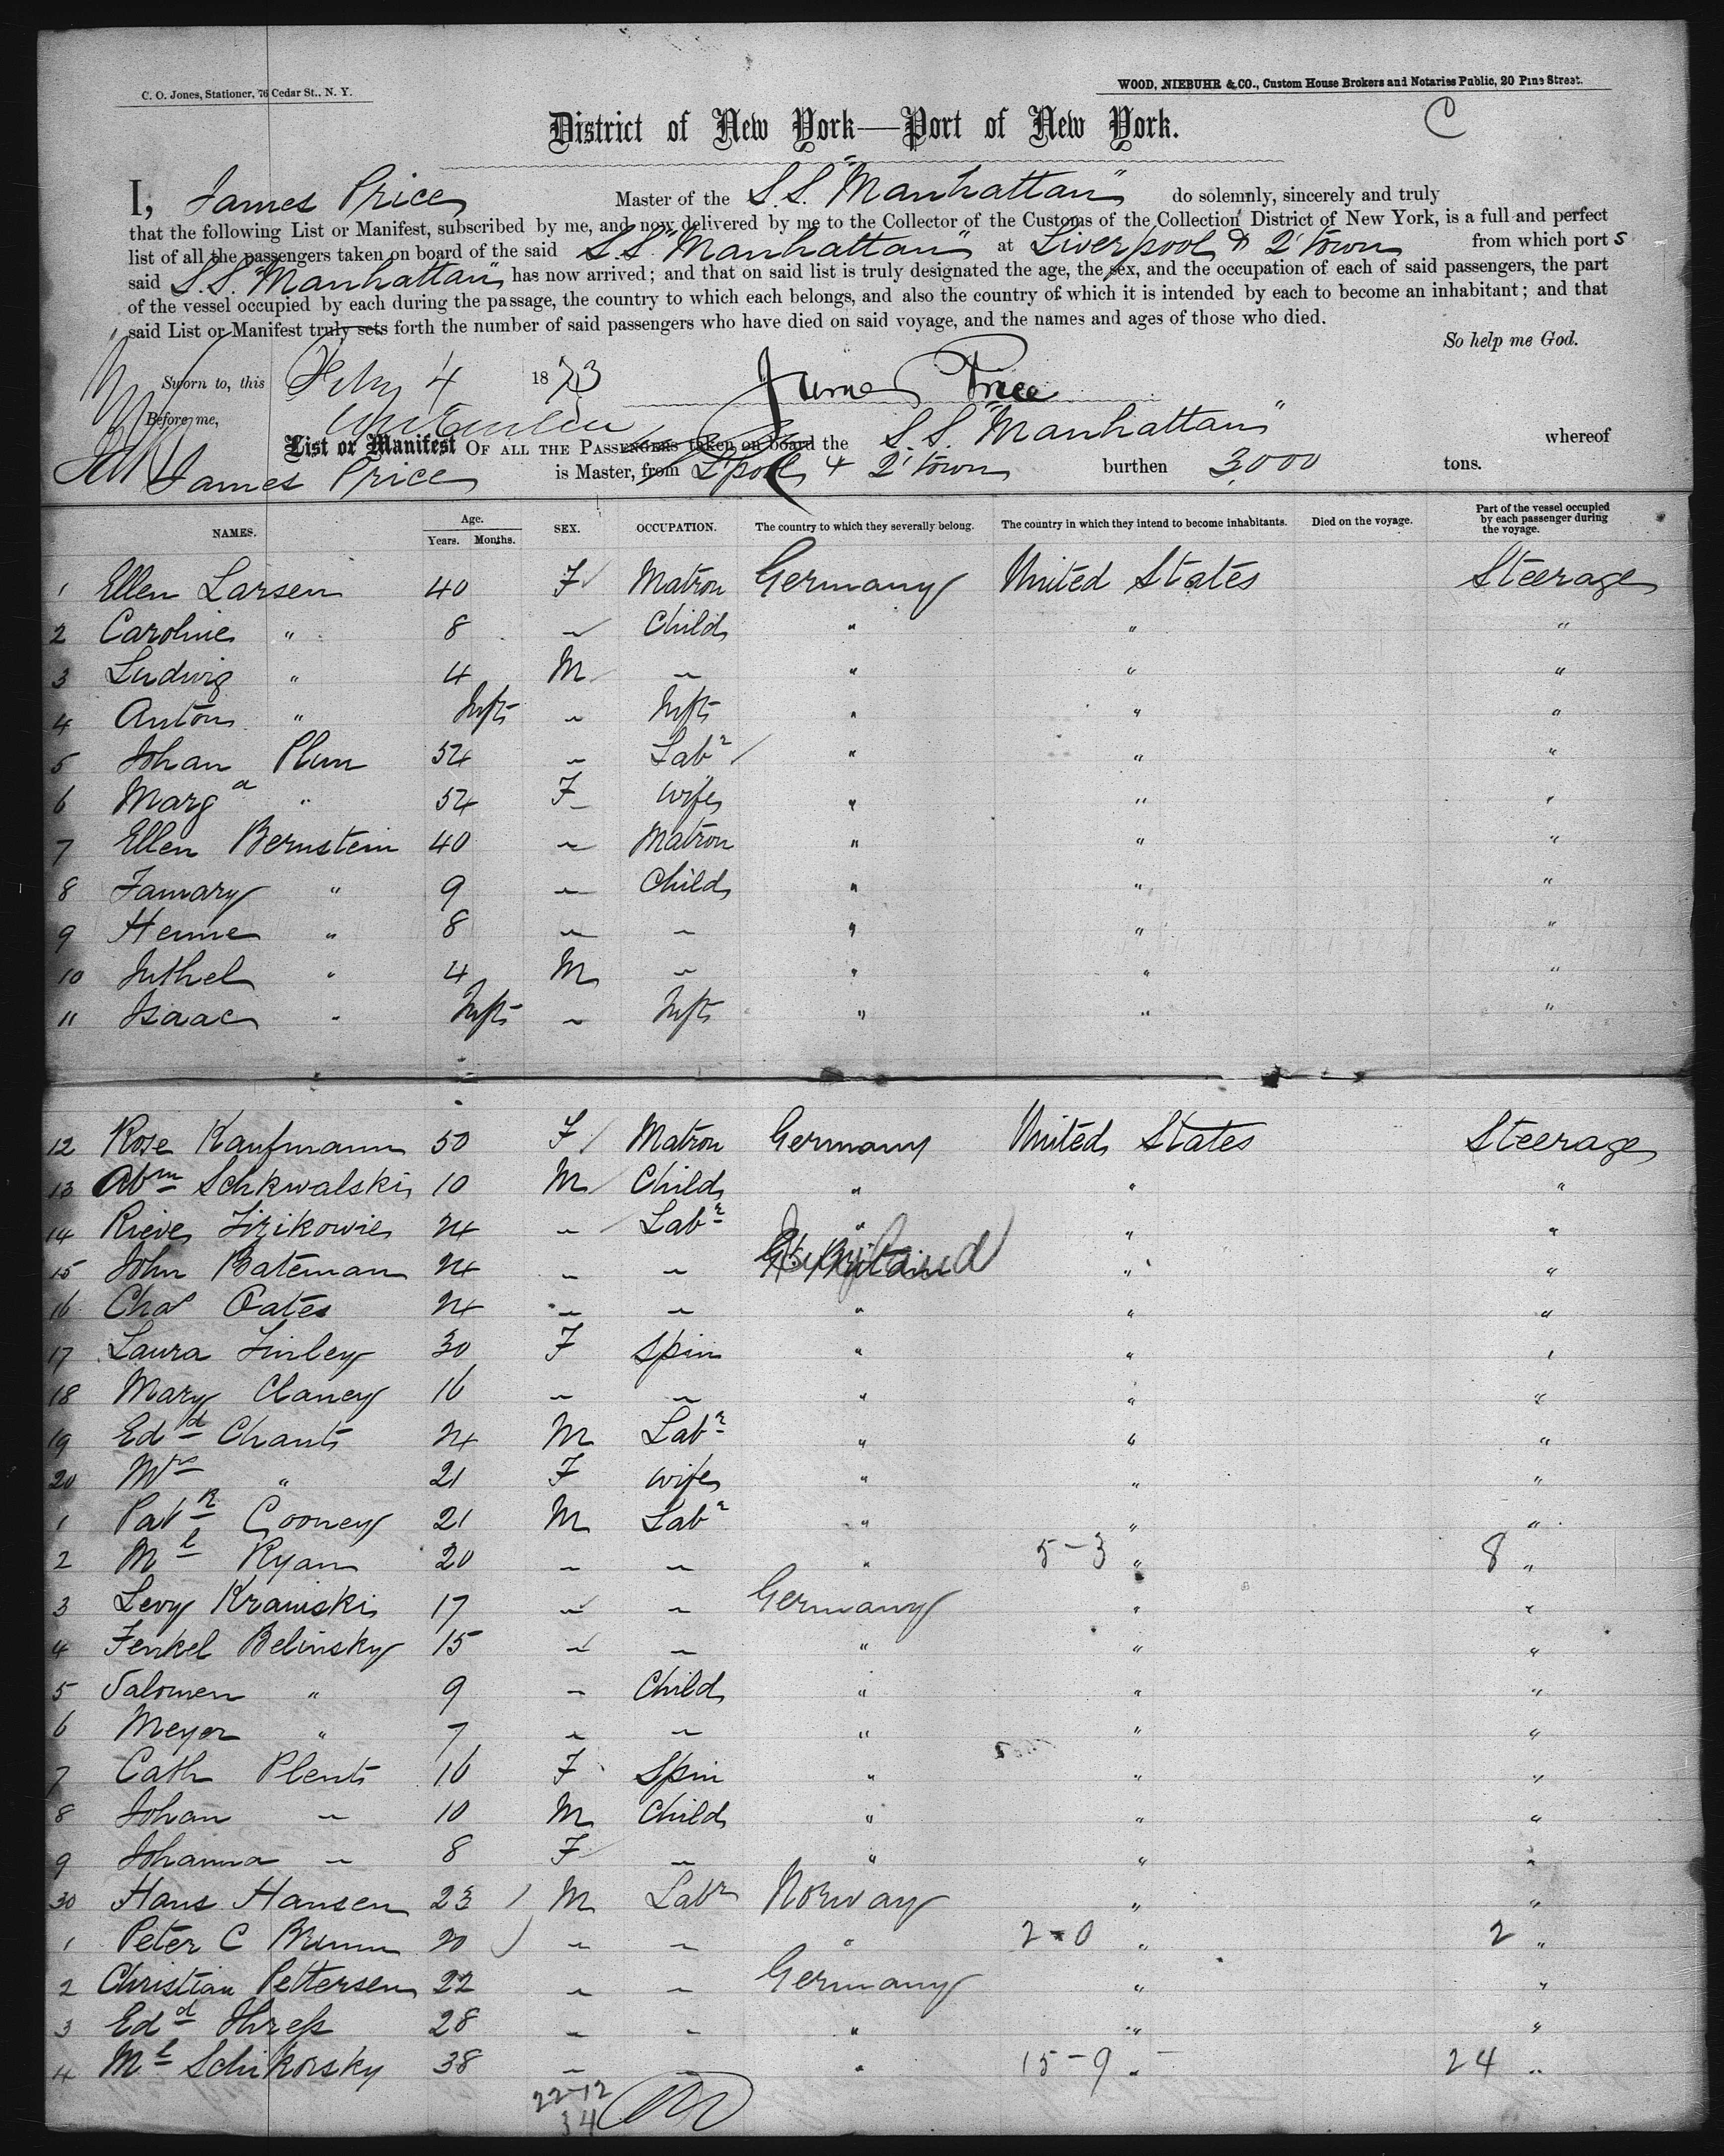 C. O. Jones, Stationer, 76 Cedar St., N. Y.
WOOD, NIEBUHR & CO., Custom House Brokers and Notaries Public, 20 Pine Street.
C
District of New York—Port of New York.
I, James Price Master of the S.S. "Manhattan" do solemnly, sincerely and truly
that the following List or Manifest, subscribed by me, and now delivered by me to the Collector of the Customs of the Collection District of New York, is a full and perfect
list of all the passengers taken on board of the said S.S. "Manhattan" at Liverpool & Q'town from which port s
said S.S. "Manhattan" has now arrived; and that on said list is truly designated the age, the sex, and the occupation of each of said passengers, the part
of the vessel occupied by each during the passage, the country to which each belongs, and also the country of which it is intended by each to become an inhabitant; and that
said List or Manifest truly sets forth the number of said passengers who have died on said voyage, and the names and ages of those who died.
So help me God.
Sworn to, this Feby 4 1873 James Price
Before me,
List or Manifest OF ALL THE PASSENGERS taken on board the S.S. "Manhattan" whereof
James Price is Master, from L'pool & Q'town burthen 3,000 tons.
NAMES. Age. Years. Months. SEX. OCCUPATION. The country to which they severally belong. The country in which they intend to become inhabitants. Died on the voyage. Part of the vessel occupied by each passenger during the voyage.
1 Ellen Larsen 40 F Matron Germany United States Steerage
2 Caroline " 8 " Child " " "
3 Ludwig " 4 M " " " "
4 Anton " Inft " Inft " " "
5 Johan Plum 54 " Labr " " "
6 Marga " 54 F wife " " "
7 Ellen Bernstein 40 " Matron " " "
8 " 9 " Child " " "
9 " 8 " " " " "
10 Juthel " 4 M " " " "
11 Isaac " Inft " Inft " " "
12 Rose Kaufmann 50 F Matron Germany United States Steerage
13 Abm Schkwalski 10 M Child " " "
14 24 " Labr " " "
15 John Bateman 24 " " " "
16 Chas Oates 24 " " " " "
17 Laura Finley 30 F Spin " " "
18 Mary Clancy 16 " " " " "
19 Edd Chants 24 M Labr " " "
20 Mrs " 21 F wife " " "
1 Patk Cooney 21 M Labr " " "
2 Ml Ryan 20 " " " 5-3 " 8 "
3 Levy 17 " " Germany " "
4 Fenkel Belinsky 15 " " " " "
5 Salomen " 9 " Child " " "
6 Meyer " 7 " " " " "
7 Cath Plents 16 F Spin " " "
8 Johan " 10 M Child " " "
9 Johanna " 8 F " " " "
30 Hans Hansen 23 M Labr Norway " "
1 Peter C 20 " " " 2-0 " 2 "
2 Christian Pettersen 22 " " Germany " "
3 Edd 28 " " " " "
4 Ml Schikorsky 38 " " " 15-9 " 24 "
22-12
34